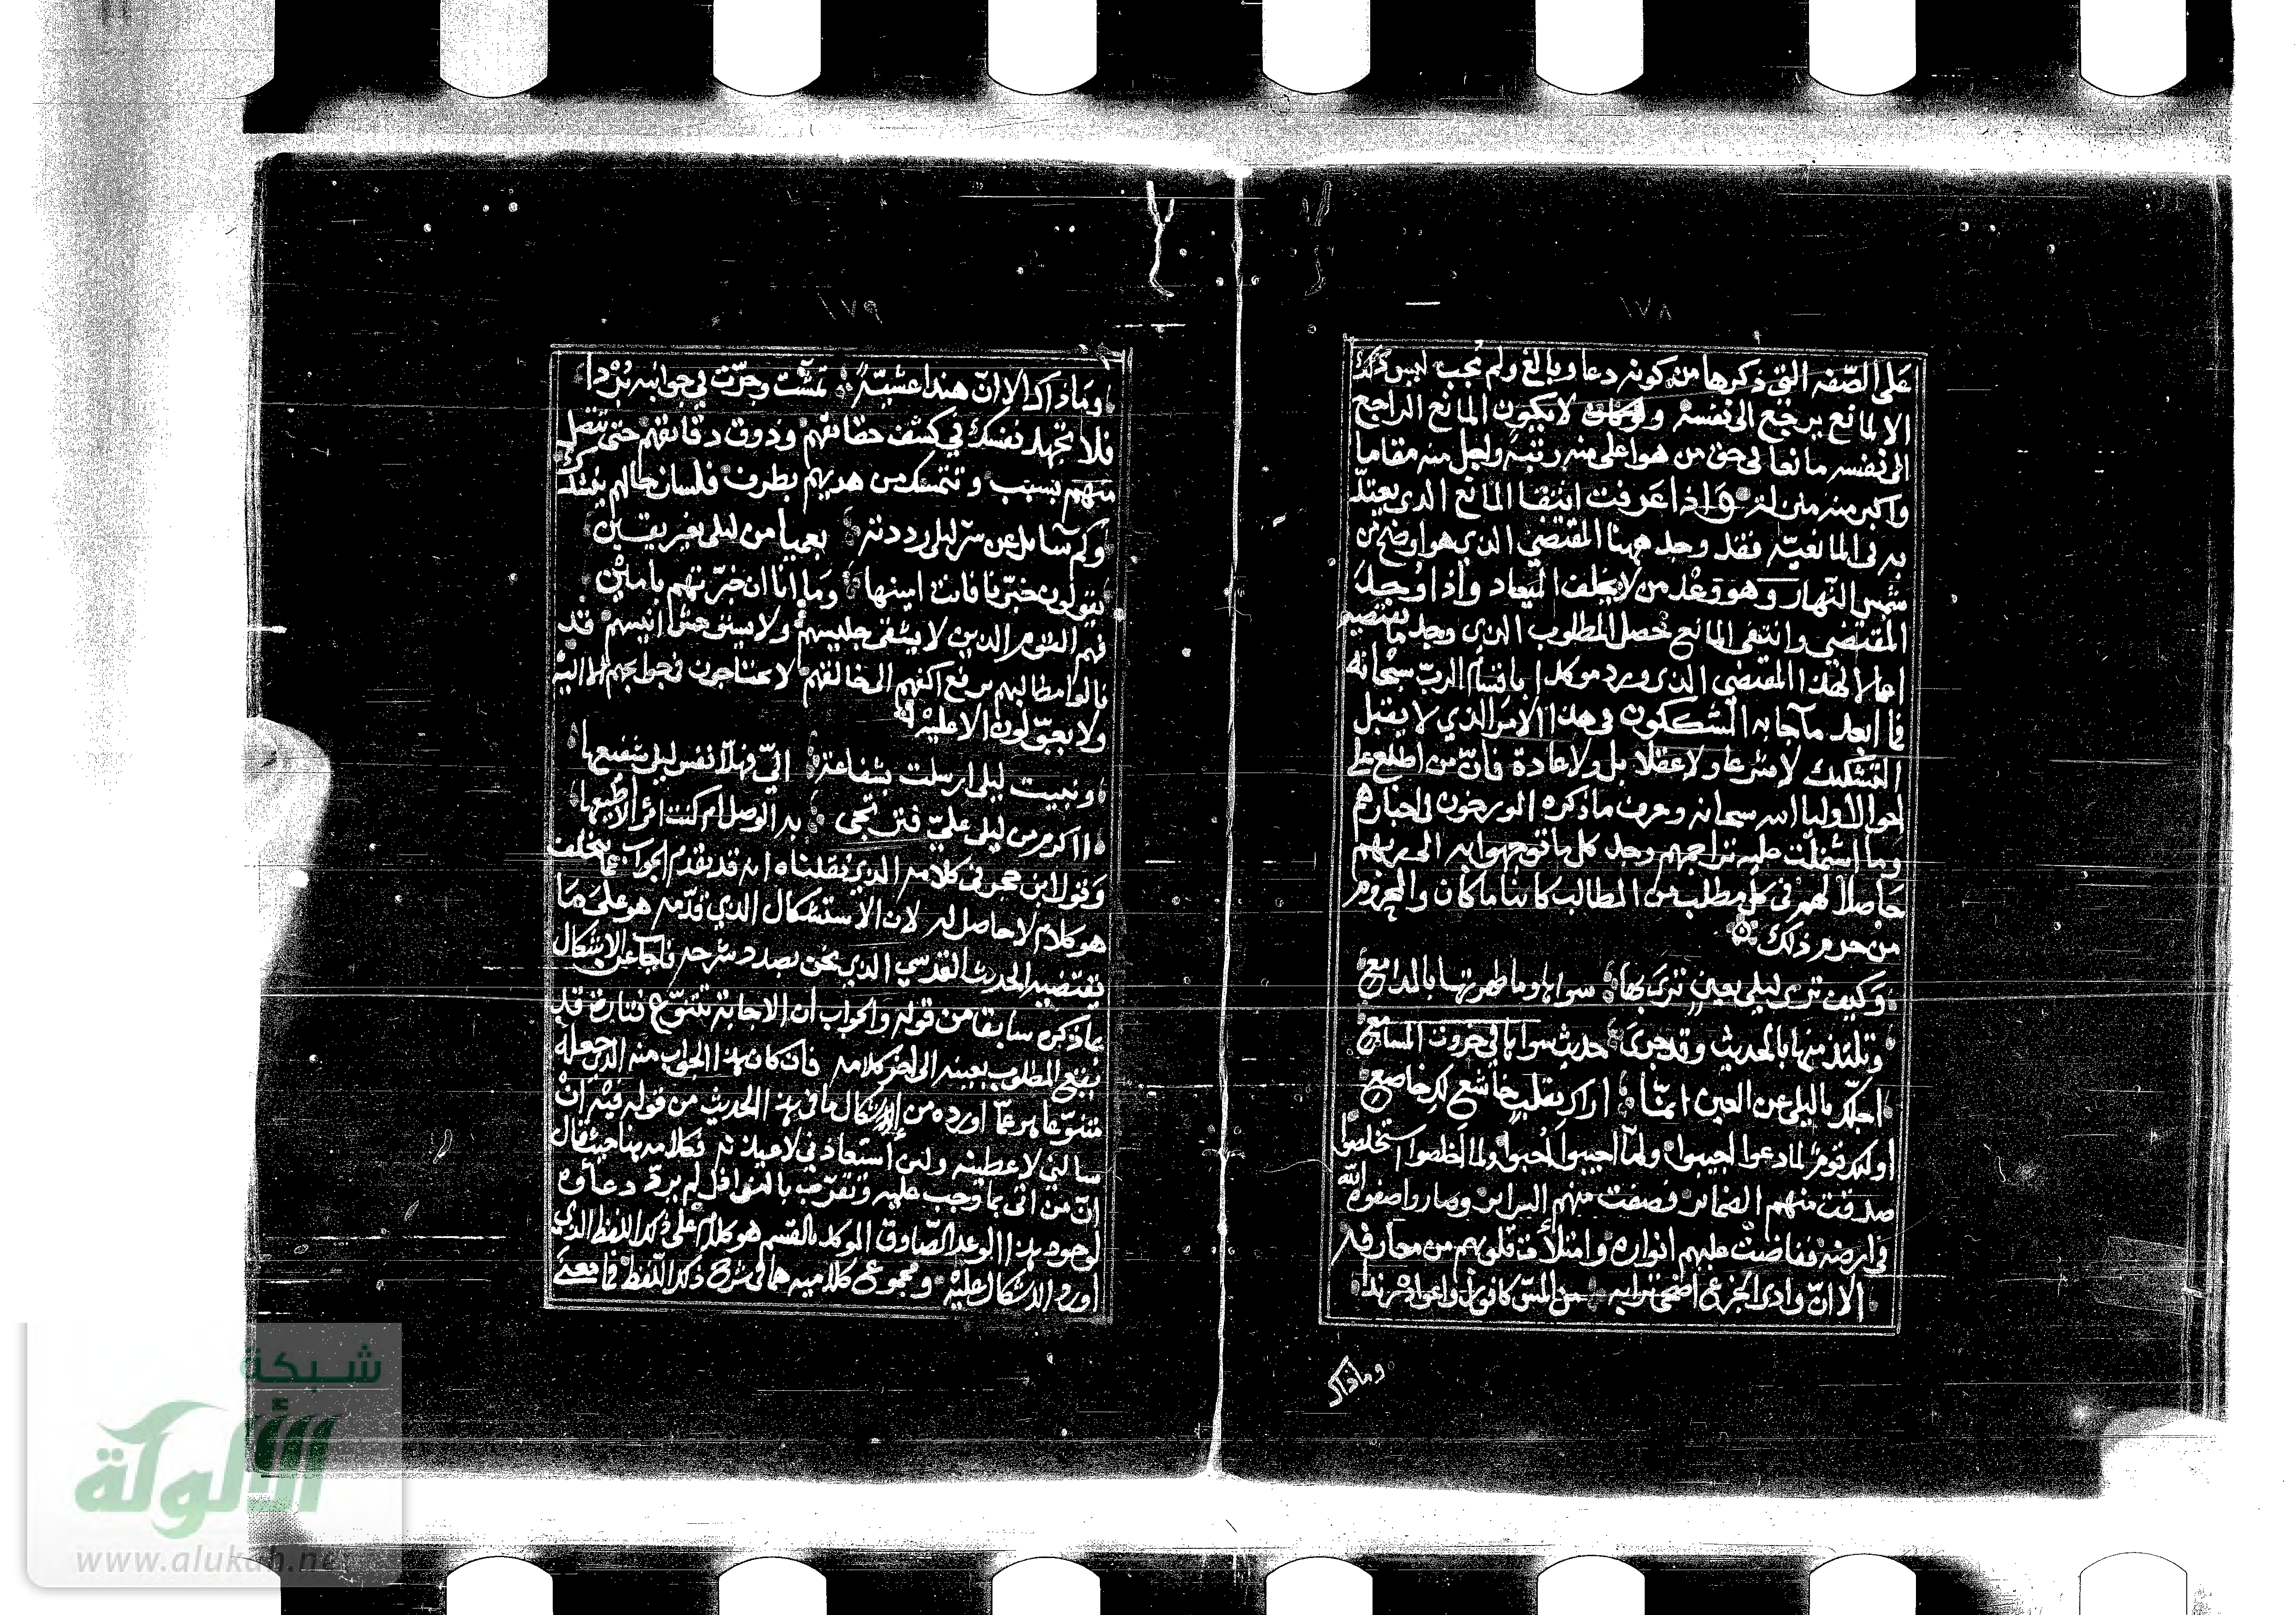 ١٧٨
على الصفه التي ذكرها من كونه دعا وبالغ ولم يجب ليس ذلك
الا لمانع يرجع الى نفسه لا يكون المانع الراجع
الى نفسه مانعا في حق من هو اعلى منه رتبة واجل منه مقاما
واكبر منه منزلة واذا عرفت انتفا المانع الذي يعتد
به في المانعيه فقد وجد ههنا المقتضي الذي هو اوضح من
شمس النهار وهو وعد من لا يخلف الميعاد واذا وجد
المقتضي وانتفى المانع حصل المطلوب الذي وجد ما يقتضيه
اعمالا لهذا المقتضي الذي ورد موكدا باقسام الرب سبحانه
فما ابعد ما جا به المشككون في هذا الامر الذي لا يقبل
التشكيك لا شرعا ولا عقلا بل ولا عادة فان من اطلع على
احوال اوليا الله سبحانه وعرف ما ذكره المورخون في اخبارهم
وما اشتملت عليه تراجمهم وجد كل ما توجهوا به الى ربهم
حاصلا لهم في كل مطلب من المطالب كائنا ما كان والمحروم
من حرم ذلك
وكيف ترى ليلى بعين ترى بها سواها وما طهرتها بالمدامع
وتلتذ منها بالحديث وقد جرى حديث سواها في خروت المسامع
اجلك يا ليلى عن العين انما اراك بقلب خاشع لك خاضع
اولئك قوم لما دعوا اجيبوا ولما اجيبوا احبوا ولما اخلصوا استخلصوا
صدقت منهم الضمائر فصفت منهم السرائر وصاروا صفوة الله
في ارضه ففاضت عليهم انواره وامتلأت قلوبهم من معارفه
الا ان وادي الجزع اضحى ترابه من المس كافورا واعواده رندا
وما ذاك
١٧٩
وما ذاك الا ان هندا عشية تمشت وجرت في جوانبه بردا
فلا تجهد نفسك في كشف حقائقهم وذوق دقائقهم حتى تتصل
منهم بسبب وتتمسك من هديهم بطرف فلسان حالهم ينشدك
وكم سائل عن سر ليلى رددته بعمياً من ليلى بغير يقين
يقولون خبرنا فانت امينها وما انا ان خبرتهم بامين
فهم القوم الذين لا يشقى جليسهم ولا يستوحش انيسهم قد
نالوا مطالبهم برفع اكفهم الى خالقهم لا يحتاجون في حوائجهم الا اليه
ولا يعولون الا عليه
ونبيت ليلى ارسلت بشفاعة الي فهلا نفس ليلى شفيعها
ااكرم من ليلى علي فترتجي به الوصل ام كنت امرأ لا اطيعها
وقول ابن حجر في كلامه الذي نقلناه انه قد تقدم الجواب عما يتخلف
هو كلام لا حاصل له لان الاستشكال الذي قدمه هو على ما
يقتضيه الحديث القدسي الذي نحن بصدد شرحه فاجاب عن الاشكال
بما ذكره سابقا من قوله والجواب ان الاجابة تتنوع فتارة قد
يقع المطلوب بعينه الى اخر كلامه فان كان هذا الجواب منه الذي جعله
متنوعا هو عما اورده من الاشكال ما في هذا الحديث من قوله فيه ان
سالني لاعطينه ولئن استعاذ بي لاعيذنه فكلامه هنا حيث قال
ان من اتى بما وجب عليه وتقرب بالنوافل لم يرد دعاؤه
لوجود هذا الوعد الصادق الموكد بالقسم هو كلام على ذلك اللفظ الذي
اورد الاشكال عليه ومجموع كلاميه هما في شرح ذلك اللفظ فما معنى
شبكة
الألوكة
www.alukah.ne